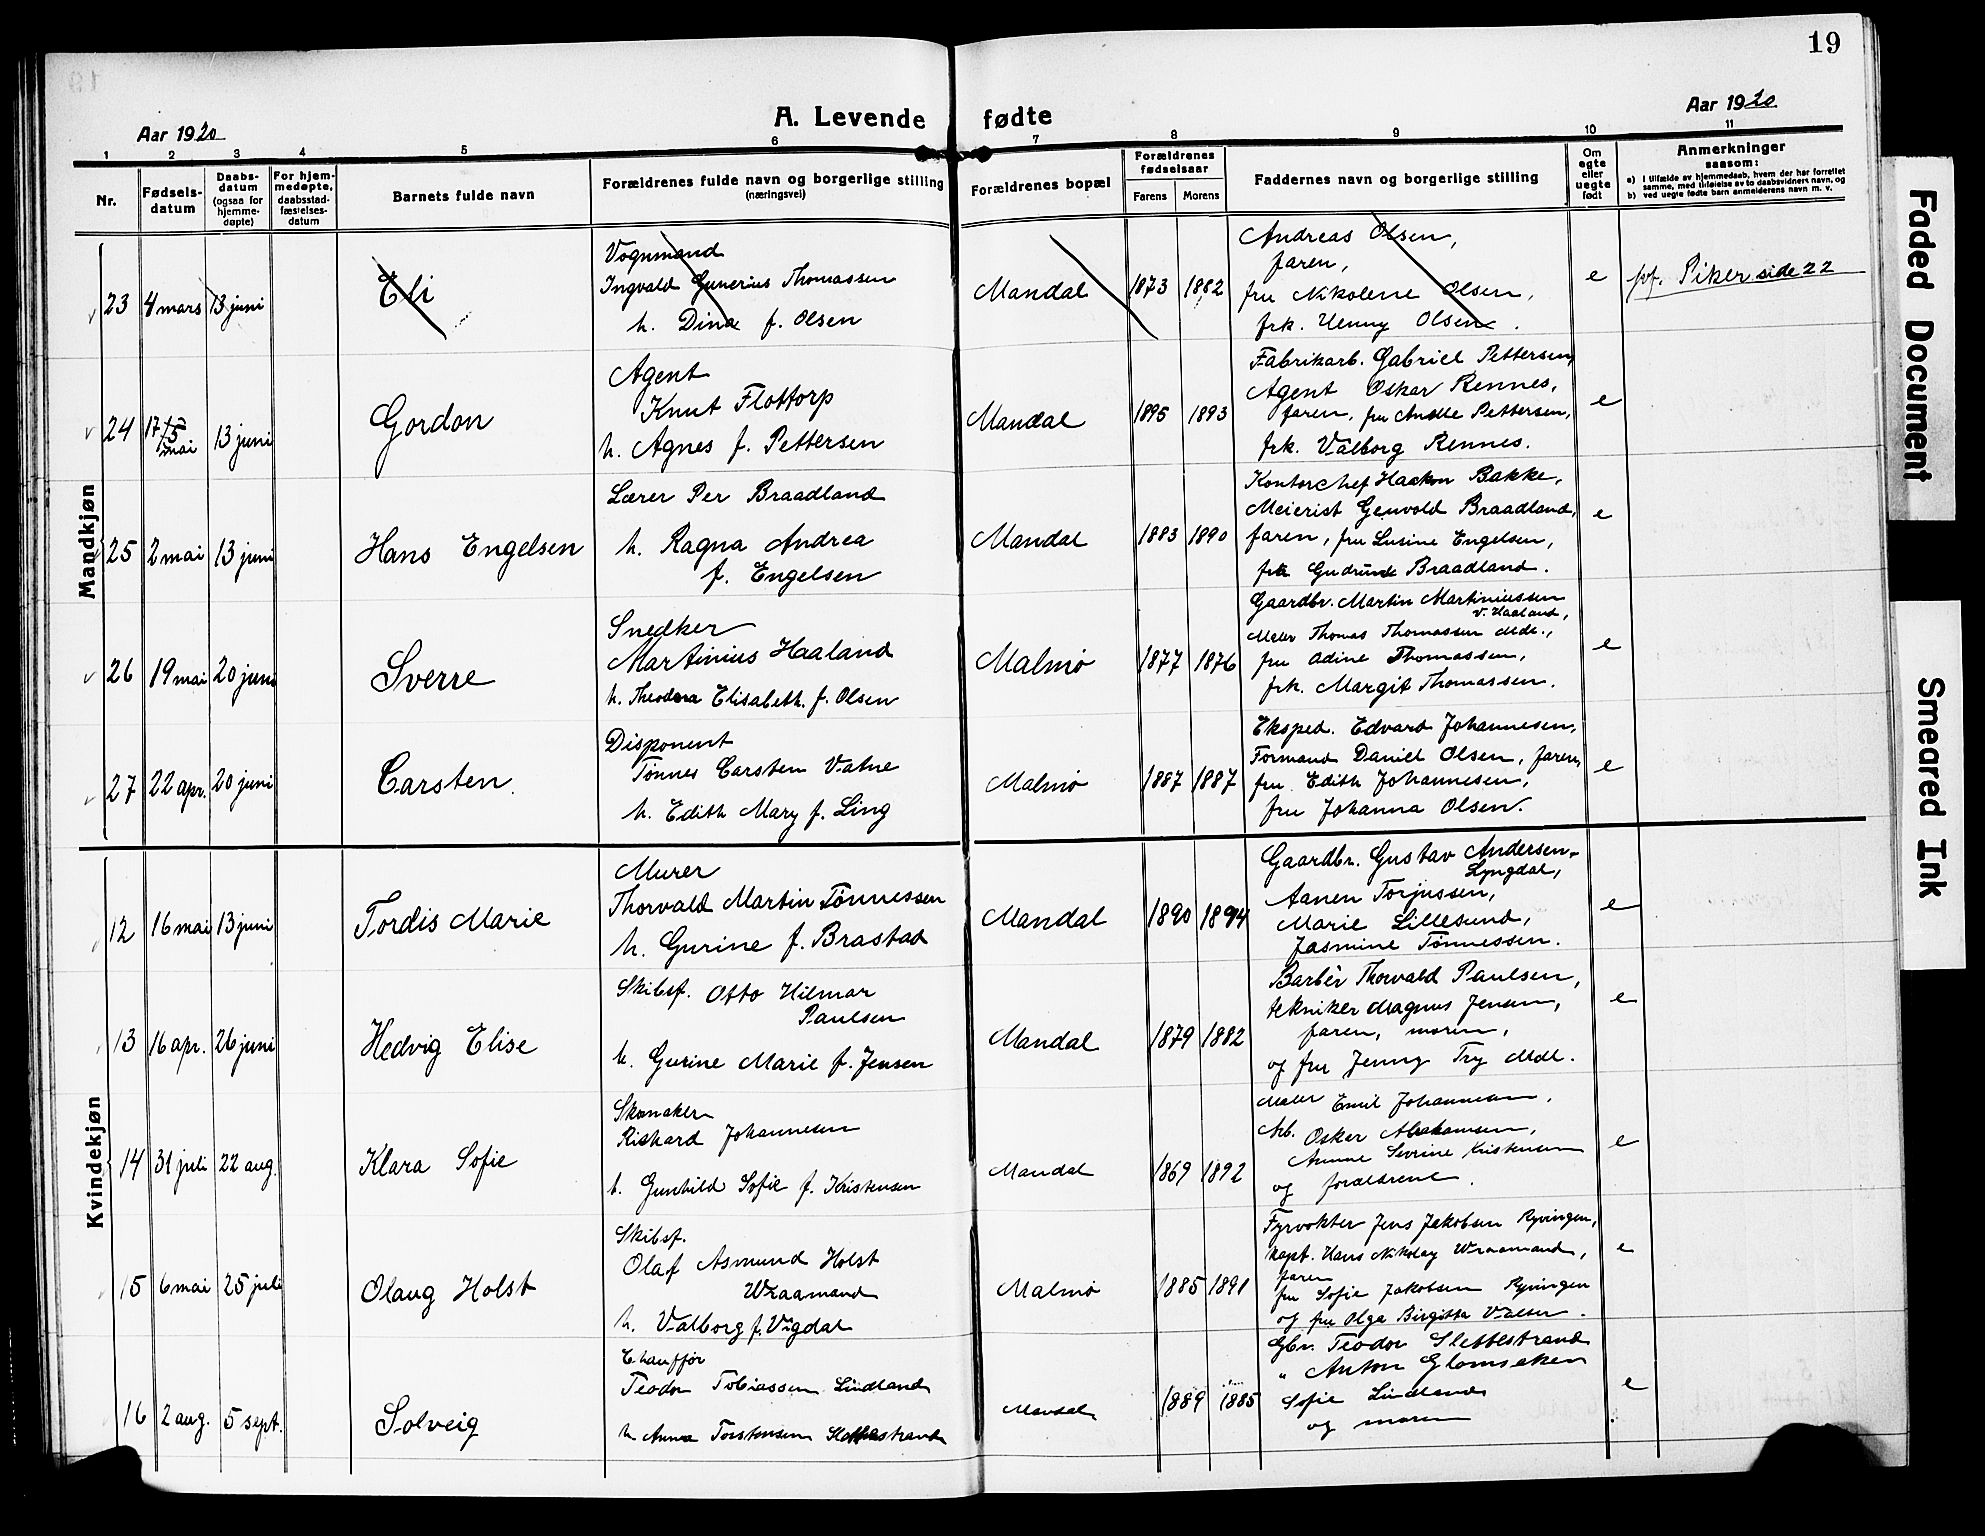 19
Aar 1920
A. Levende fødte
Aar 1920
1 2 3 4 5 6 7 8 9 10 11
Nr.
Fødsels-
datum
Daabs-
datum
(ogsaa for
hjemme-
døpte)
For hjem-
medøpte,
daabsstad-
fæstelses-
datum
Barnets fulde navn
Forældrenes fulde navn og borgerlige stilling
(næringsvei)
Forældrenes bopæl
Forældrenes
fødselsaar
Farens Morens
Faddernes navn og borgerlige stilling
Om
egte
eller
uegte
født
Anmerkninger
saasom:
a) i tilfælde av hjemmedaab, hvem der har forrettet
samme, med tilføielse av to daabsvidners navn, og
b) ved uegte fødte barn anmelderens navn m. v.
Mandkjøn
23 4 mars 13 juni
Eli
Vognmand
Ingvald Gunerius Thomassen
h. Dina f. Olsen
Mandal
1873 1882
Andreas Olsen,
faren,
fru Nikolene Olsen,
frk. Henny Olsen.
e
jvf. Piker side 22
24 17/5 mai 13 juni
Gordon
Agent
Knut Flottorp
h. Agnes f. Pettersen
Mandal
1895 1893
Fabrikarb. Gabriel Pettersen,
Agent Oskar Rennes,
faren, fru Pettersen,
frk. Valborg Rennes.
e
25 2 mai 13 juni
Hans Engelsen
Lærer Per Braadland
h. Ragna Andrea
f. Engelsen
Mandal
1883 1890
Kontorchef Haakon Bakke,
Meierist Genvold Braadland,
faren, fru Lusine Engelsen,
frk Gudrun Braadland.
e
26 19 mai 20 juni
Sverre
Snedker
Martinius Haaland
h. Theodora Elisabeth f. Olsen
Malmø
1877 1876
Gaardbr. Martin Martiniussen
v. Haaland,
Maler Thomas Thomassen Mdl.,
fru Adine Thomassen,
frk. Margit Thomassen.
e
27 22 apr. 20 juni
Carsten.
Disponent
Tønnes Carsten Vatne
h. Edith Mary f. Ling
Malmø
1887 1887
Eksped. Edvard Johannesen,
Formand Daniel Olsen, faren,
fru Edith Johannesen,
fru Johanna Olsen.
e
Kvindekjøn
12 16 mai 13 juni
Tordis Marie
Murer
Thorvald Martin Tønnessen
h. Gurine f. Brastad
Mandal
1890 1894
Gaardbr. Gustav Andersen-
Lyngdal,
Aanen Torjussen,
Marie Lillesund,
Jasmine Tønnessen.
e
13 16 apr. 26 juni
Hedvig Elise
Skibsf. Otto Hilmar
Paulsen
h. Gurine Marie f. Jensen
Mandal
1879 1882
Barbér Thorvald Paulsen,
tekniker Magnus Jensen,
faren, moren,
og fru Jenny Try Mdl.
e
14 31 juli 22 aug.
Klara Sofie
Skomaker
Rikhard Johannesen
h. Gunhild Sofie f. Kristensen
Mandal
1869 1892
Maler Emil Johannesen,
Arb. Osker Abrahamsen,
Anne Sevrine Kristensen
og forældrene.
e
15 6 mai 25 juli
Olaug Holst
Skibsf.
Olaf Asmund Holst
Wraamand
h. Valborg f. Vigdal
Malmø
1885 1891
Fyrvokter Jens Jakobsen Ryvingen,
kapt. Hans Nikolay Wraamand,
faren
fru Sofie Jakobsen Ryvingen
og fru Olga Birgitte Valsen.
e
16 2 aug. 5 sept.
Solveig
Chauffør
Teodor Tobiassen Lindland
h Anna Torstensen Slettestrand
Mandal
1889 1885
Gbr. Teodor Slettestrand
" Anton Glomsaker
Sofie Lindland
og moren
e
Faded Document
Smeared Ink